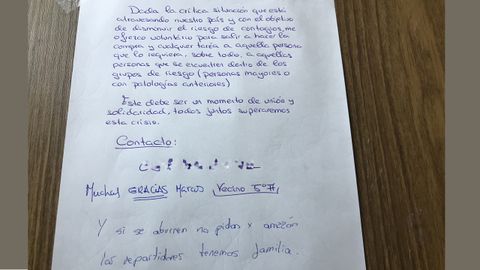 Dada la crítica situación que está
atravesando nuestro país y con el objetivo
de disminuir el riesgo de contagios, me
ofrezco voluntario para salir a hacer la
compra y cualquier tarea a aquella persona
que lo requiera, sobre todo, a aquellas
personas que se encuentren dentro de los
grupos de riesgo (personas mayores o
con patologías anteriores)
Este debe ser un momento de unión y
solidaridad, todos juntos superaremos
esta crisis.
Contacto:
Muchas GRACIAS Marcos (Vecino 5ºA)
Y si se aburren no pidas x amazon
los repartidores tenemos familia.